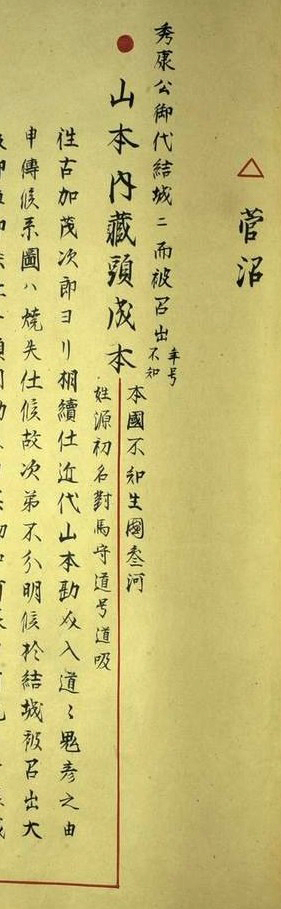 菅沼
秀康公御代結城ニ而被召出
年号
不知
山本内蔵頭成本
本國不知生國叄河
姓源初名對馬守道号道吸
往古加茂次郎ヨリ相續仕近代山本勘
入道々鬼彦之由
申傳候系圖ハ燒失仕候故次第不分明候於結城被召出大